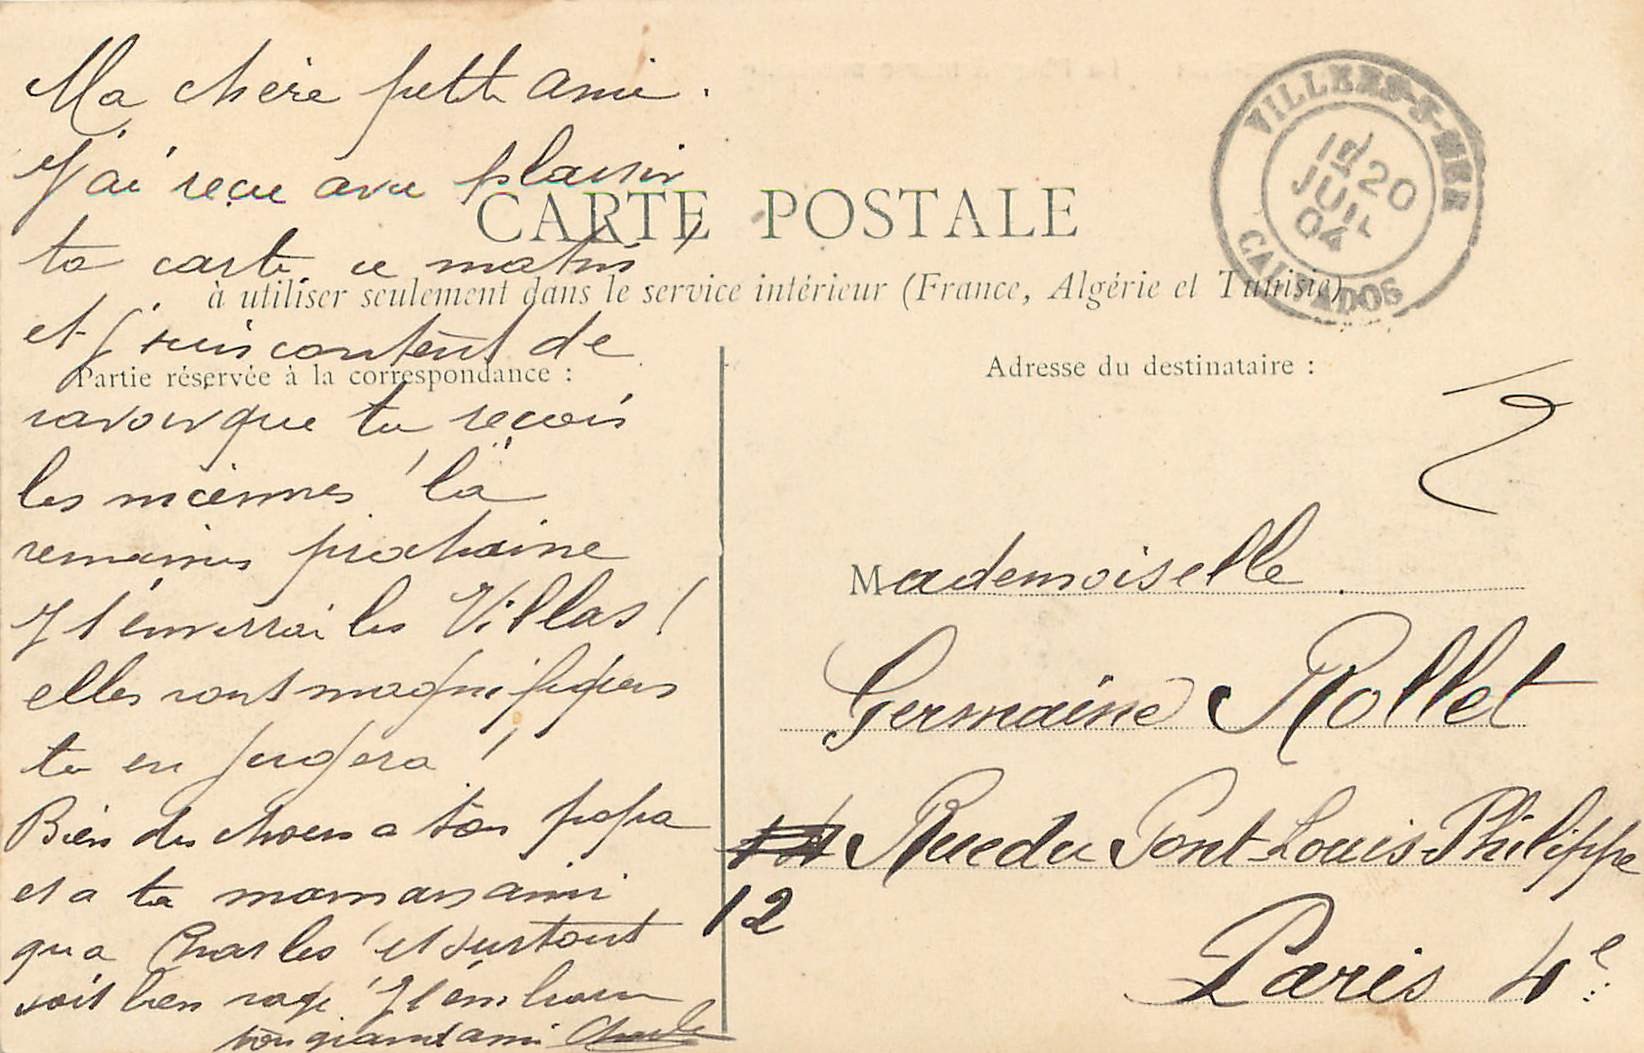 Ma chère petite amie.
J'ai reçu avec plaisir
ta carte ce matin
et j'suis content de
savoir que tu reçois
les miennes ! la
semaine prochaine
J t'enverrai les Villas !
elles sont magnifiques
tu en jugera !
Bien des choses a ton papa
et a ta maman ainsi
qu a Charles ! et surtout
soit bien sage ! J t'embrasse
ton grand ami Charles
CARTE POSTALE
à utiliser seulement dans le service intérieur (France, Algérie et Tunisie)
Partie réservée à la correspondance :
Adresse du destinataire :
VILLERS-S-MER
20
JUIL
04
CALVADOS
Mademoiselle
Germaine Rollet
Rue du Pont-Louis-Philippe
12
Paris 4e